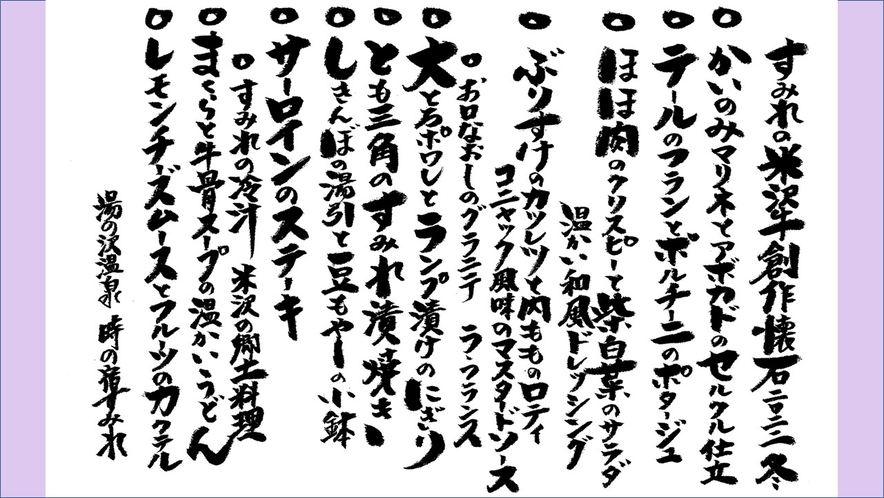 すみれの米沢牛創作懐石二〇二二 冬
○かいのみマリネとアボカドのセルクル仕立
○テールのフランとポルチーニのポタージュ
○ほほ肉のクリスピーと紫白菜のサラダ
温かい和風ドレッシング
○ぶりすけのカツレツと内もものロティ
コニャック風味のマスタードソース
○お口なおしのグラニテ ラ・フランス
○大とろポワレとランプ漬けのにぎり
○とも三角のすみれ漬焼き
○しきんぼの湯引と豆もやしの小鉢
○サーロインのステーキ
○すみれの冷汁 米沢の郷土料理
○まくらと牛骨スープの温かいうどん
○レモンチーズムースとフルーツのカクテル
湯の沢温泉 時の宿すみれ